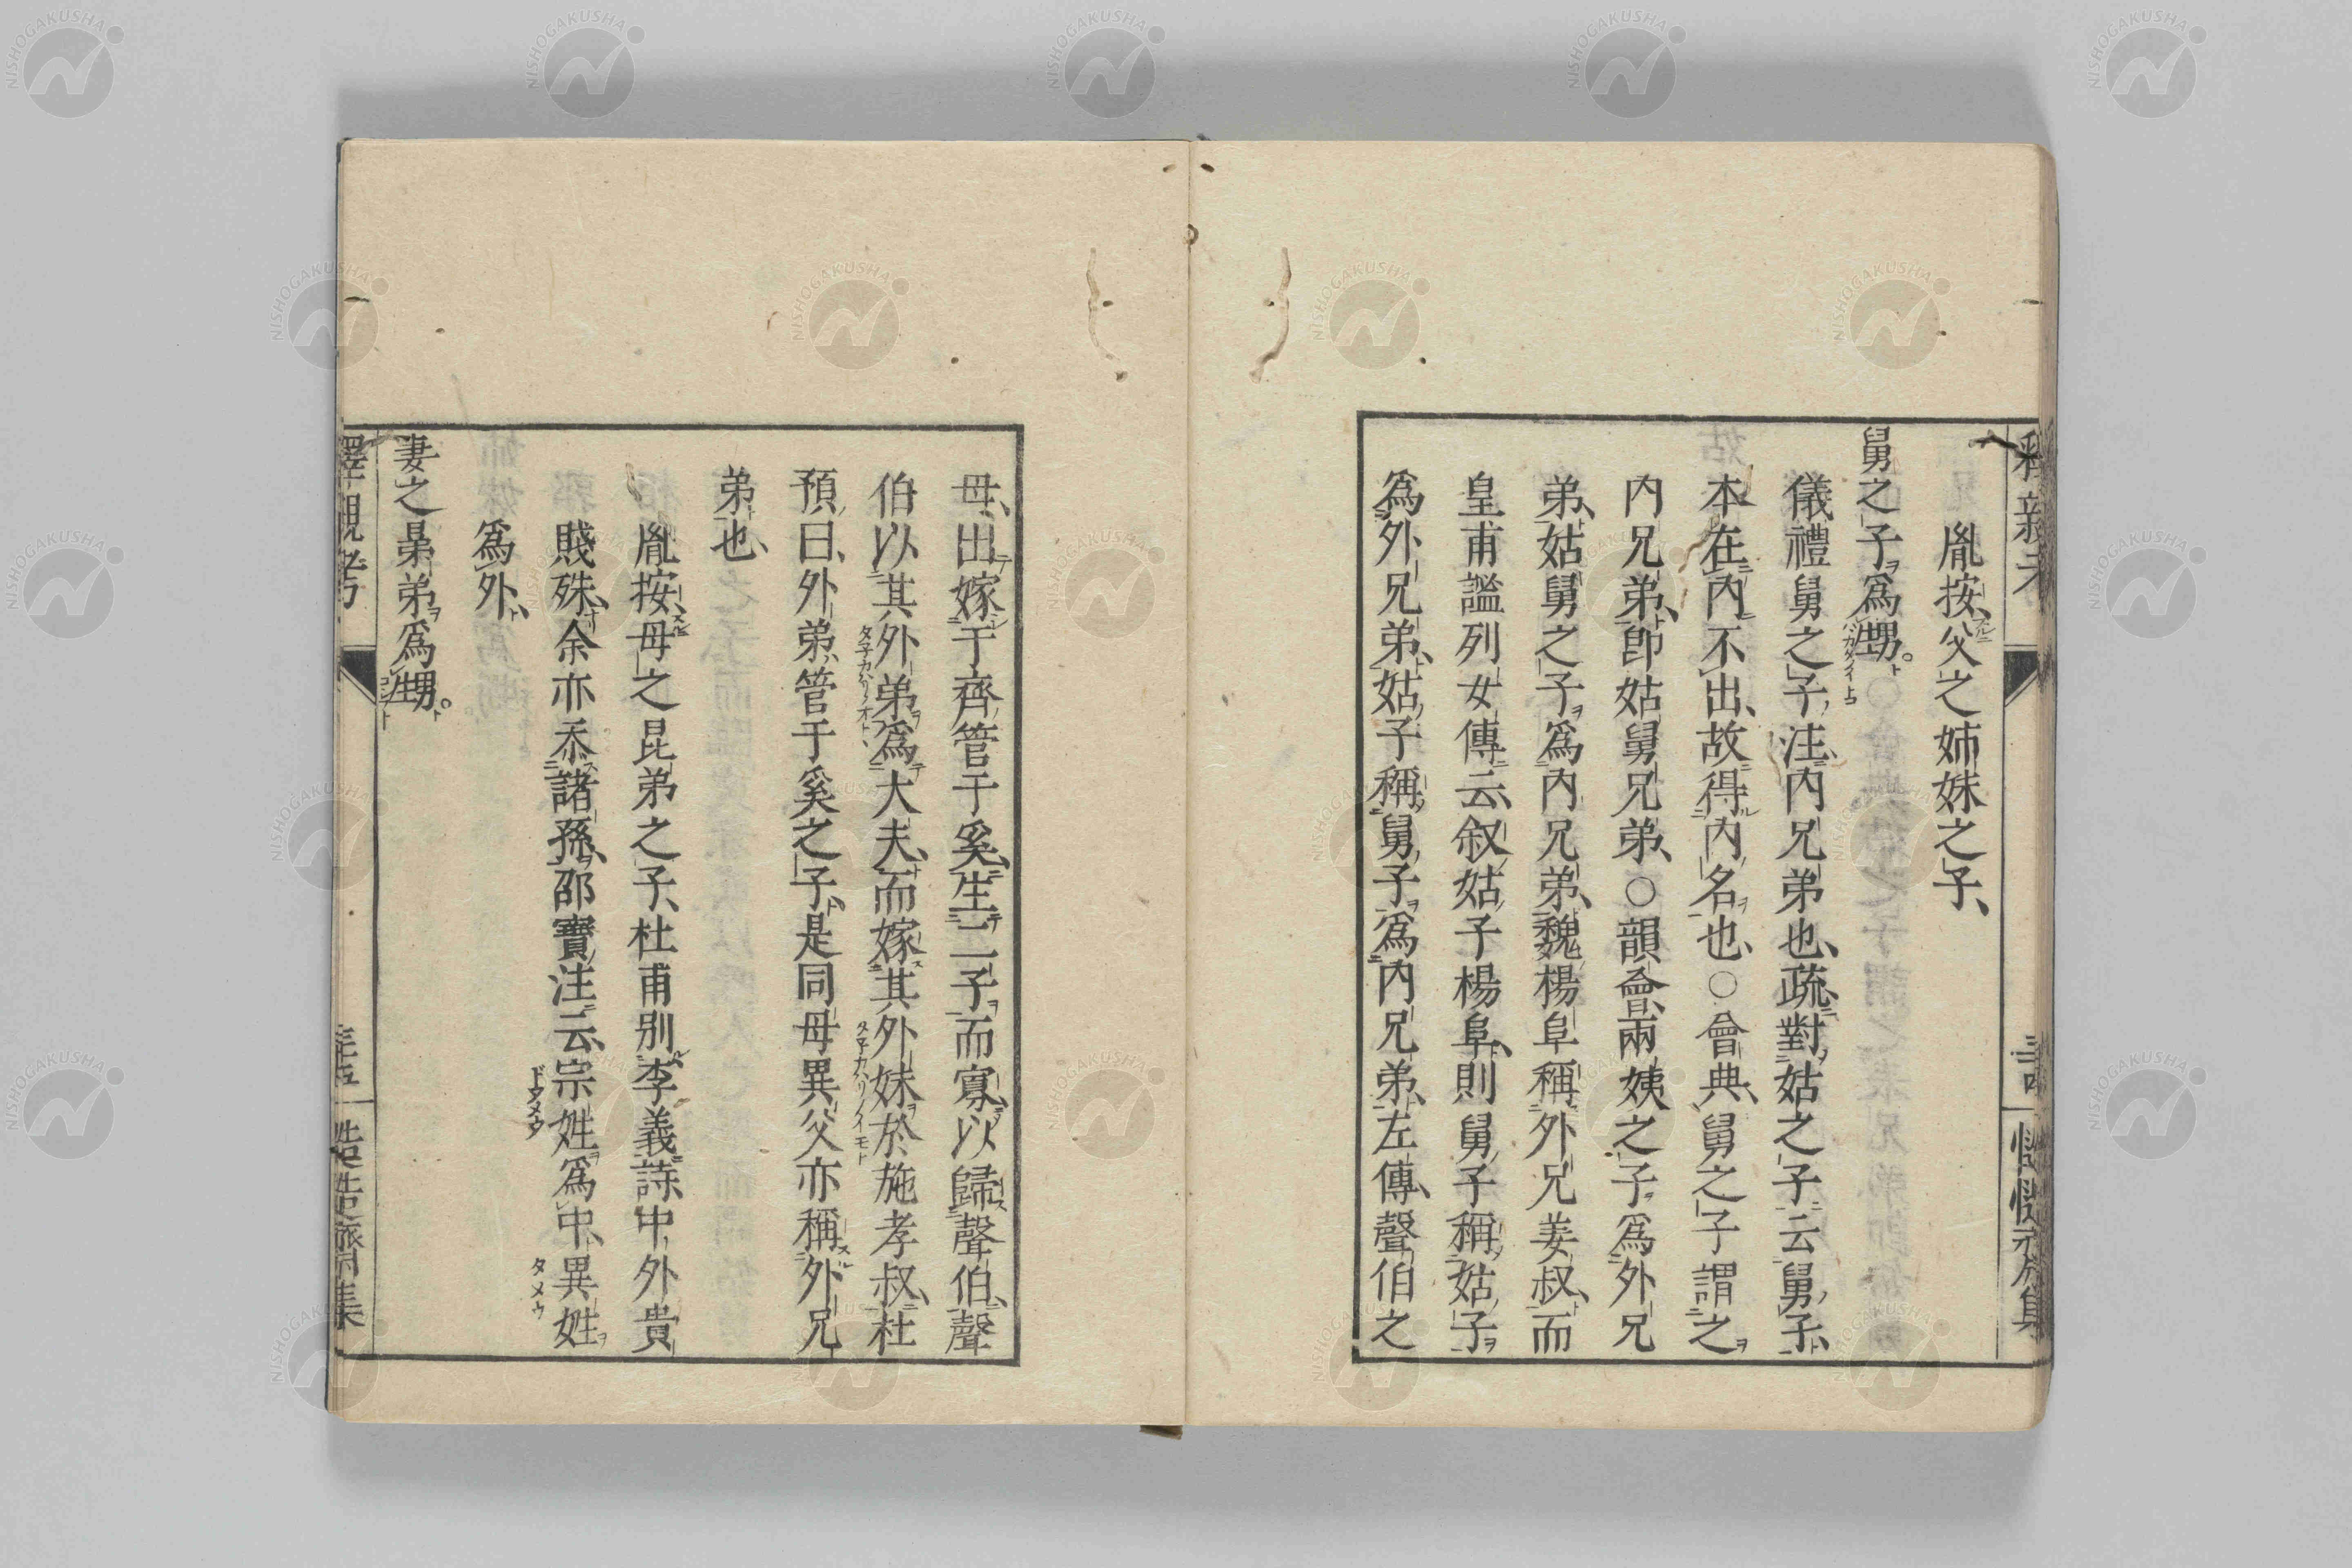 胤按、父之姉妹之子、
舅之子爲甥。
儀禮舅之子、注、内兄弟也、疏、對姑之子云舅子、
本在内不出、故得内名也、○會典、舅之子謂之
内兄弟、即姑舅兄弟、○韻會、兩姨之子爲外兄
弟、姑舅之子爲内兄弟、魏楊阜稱外兄姜叔、而
皇甫謐列女傳云、叙姑子楊阜、則舅子稱姑子
爲外兄弟、姑子稱舅子爲内兄弟、左傳、聲伯之
母、出嫁于齊管于奚、生二子而寡、以歸聲伯、聲
伯以其外弟爲大夫、而嫁其外妹於施孝叔、杜
預曰、外弟管于奚之子、是同母異父亦稱外兄
弟也、
胤按、母之昆弟之子、杜甫別李義詩、中外貴
賤殊、余亦忝諸孫、邵寶注云、宗姓爲中、異姓
爲外、
妻之晜弟爲甥。
釋親考